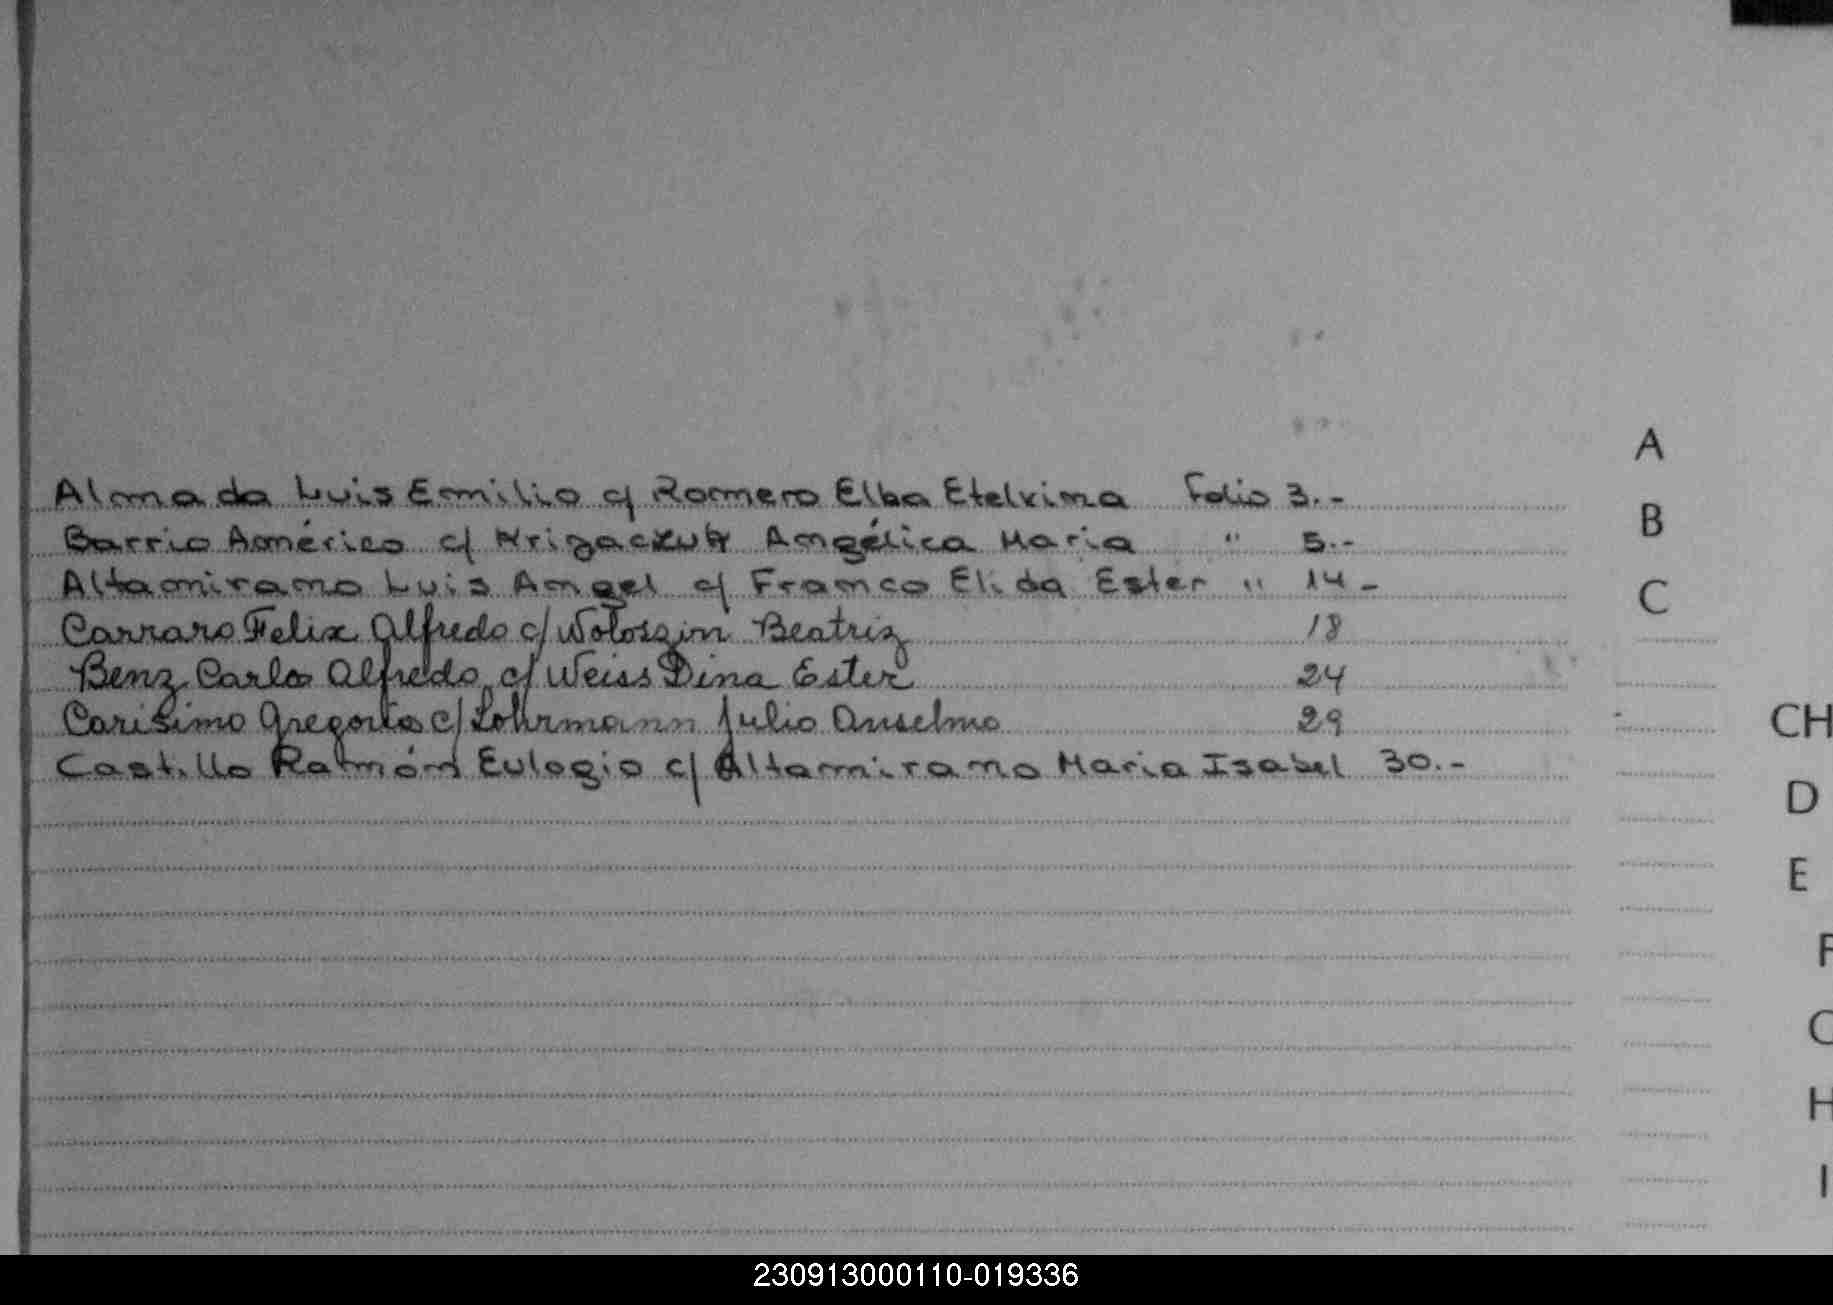 Almada Luis Emilio c/ Romero Elba Etelvina Folio 3.-
Barrio Américo c/ Krizaczuk Angélica Maria " 5.-
Altamirano Luis Angel c/ Franco Elida Ester " 14-
Carraro Felix Alfredo c/ Woloszin Beatriz 18
Benz Carlos Alfredo c/ Weiss Dina Ester 24
Carisimo Gregoria c/ Lohrmann Julio Anselmo 29
Castillo Ramón Eulogio c/ Altamirano Maria Isabel 30.-
A
B
C
CH
D
E
F
H
I
230913000110-019336